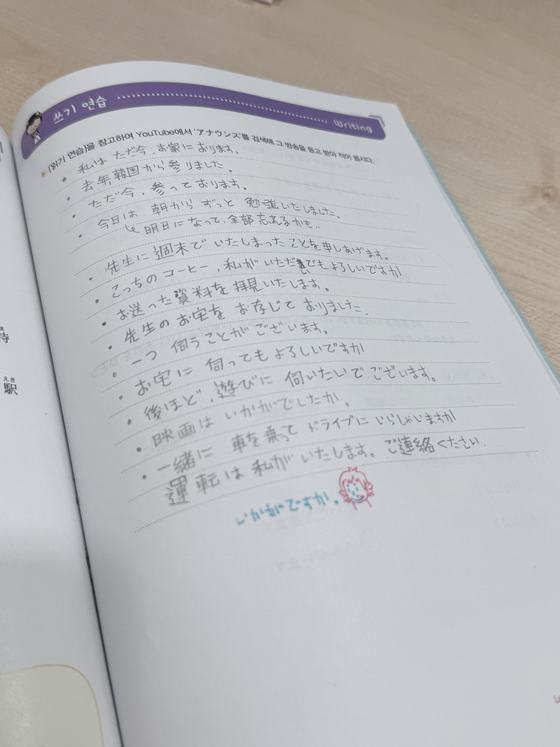 쓰기 연습
Writing
[읽기 연습]을 참고하여 YouTube에서 'アナウンス'를 검색해 그 방송을 듣고 받아 적어 봅시다.
• 私は ただ今、お家に おります。
• 去年 韓国から 参りました。
• ただ今、参って おります。
• 今日は 朝から ずっと 勉強いたしました。
明日に なって、全部 忘あるかも..
• 先生に 週末で いたしまった ことを 申しあげます。
• こっちの コーヒー、私が いただいでも よろしいですか
• お送った 資料を 拝見いたします。
• 先生の お宅を お存じて おりました.
• 一つ 伺うことが ございます。
• お宅に 伺っても よろしいですか
• 後ほど、遊びに 伺いたいで ございます。
• 映画は いかがでしたか.
• 一緒に 車を 乗って ドライブに いらしゃいますか
運転は 私が いたします。ご連絡ください.
いかがですか.
待
駅
えき